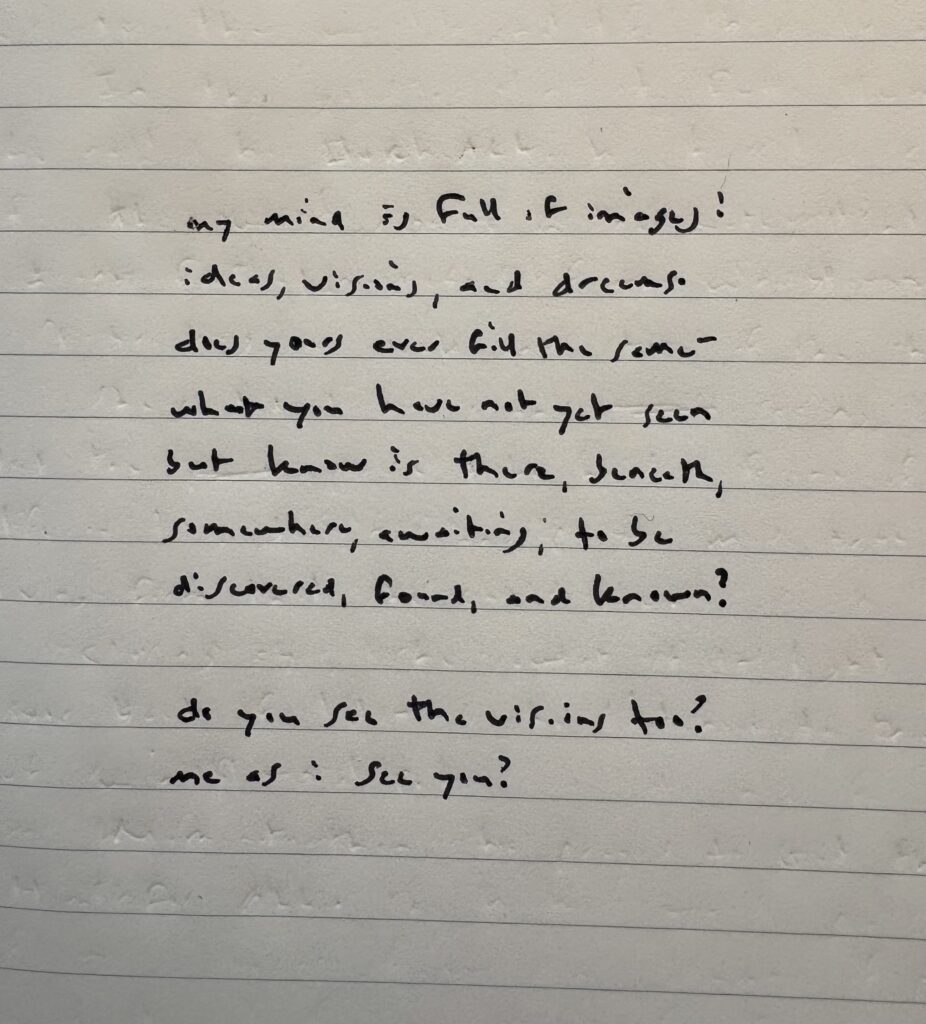 my mind is full of images:
ideas, visions, and dreams.
does yours ever fill the same-
what you have not yet seen
but know is there, beneath,
somewhere, awaiting, to be
discovered, found, and known?
do you see the visions too?
me as i see you?